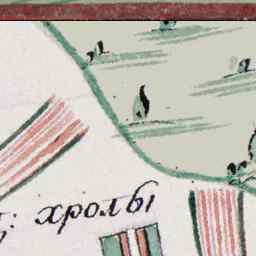 хролы